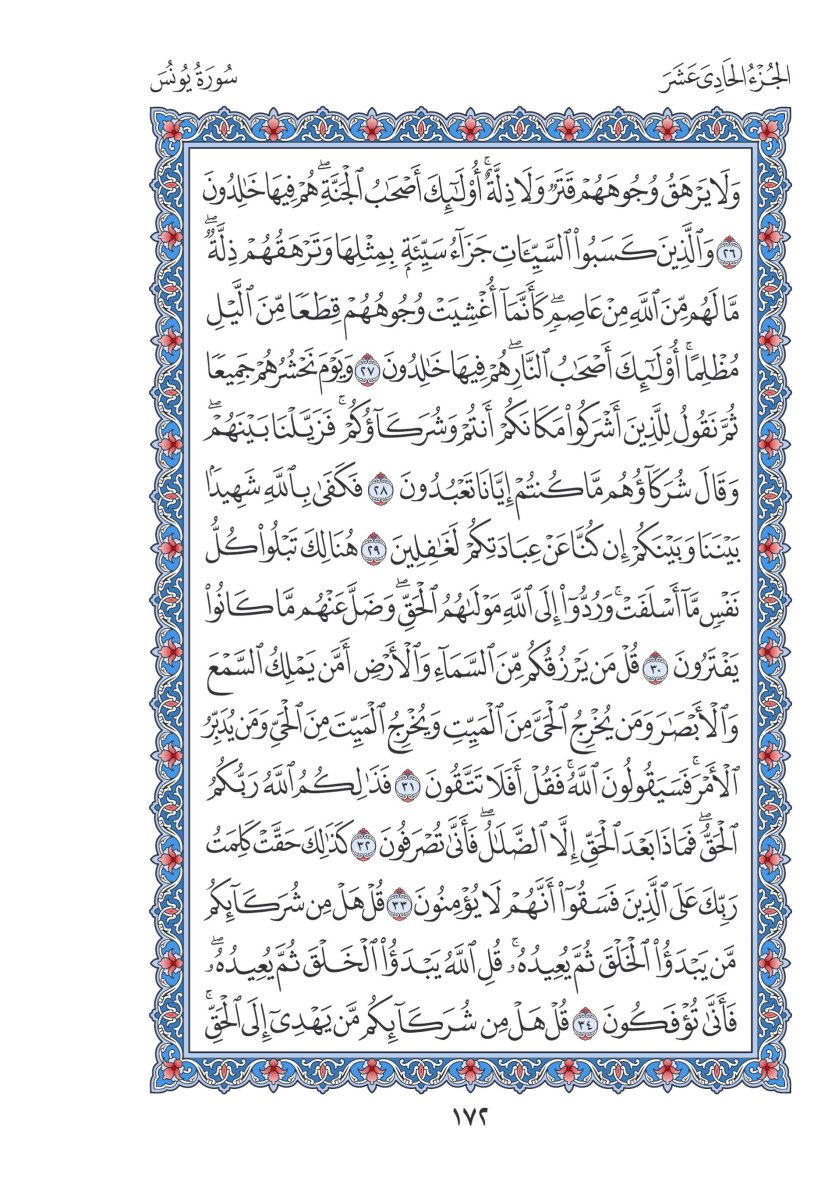 الجُزْءُ الحَادِي عَشَرَ
سُورَةُ يُونُسَ
وَلَا يَرْهَقُ وُجُوهَهُمْ قَتَرٌ وَلَا ذِلَّةٌۚ أُوْلَٰٓئِكَ أَصْحَٰبُ ٱلْجَنَّةِۖ هُمْ فِيهَا خَٰلِدُونَ
٢٦ وَٱلَّذِينَ كَسَبُواْ ٱلسَّيِّـَٔاتِ جَزَآءُ سَيِّئَةِۭ بِمِثْلِهَا وَتَرْهَقُهُمْ ذِلَّةٌۖ
مَّا لَهُم مِّنَ ٱللَّهِ مِنْ عَاصِمٍۖ كَأَنَّمَآ أُغْشِيَتْ وُجُوهُهُمْ قِطَعًا مِّنَ ٱلَّيْلِ
مُظْلِمًاۚ أُوْلَٰٓئِكَ أَصْحَٰبُ ٱلنَّارِۖ هُمْ فِيهَا خَٰلِدُونَ ٢٧ وَيَوْمَ نَحْشُرُهُمْ جَمِيعًا
ثُمَّ نَقُولُ لِلَّذِينَ أَشْرَكُواْ مَكَانَكُمْ أَنتُمْ وَشُرَكَآؤُكُمْۚ فَزَيَّلْنَا بَيْنَهُمْۖ
وَقَالَ شُرَكَآؤُهُم مَّا كُنتُمْ إِيَّانَا تَعْبُدُونَ ٢٨ فَكَفَىٰ بِٱللَّهِ شَهِيدًۢا
بَيْنَنَا وَبَيْنَكُمْ إِن كُنَّا عَنْ عِبَادَتِكُمْ لَغَٰفِلِينَ ٢٩ هُنَالِكَ تَبْلُواْ كُلُّ
نَفْسٍ مَّآ أَسْلَفَتْۚ وَرُدُّوٓاْ إِلَى ٱللَّهِ مَوْلَىٰهُمُ ٱلْحَقِّۖ وَضَلَّ عَنْهُم مَّا كَانُواْ
يَفْتَرُونَ ٣٠ قُلْ مَن يَرْزُقُكُم مِّنَ ٱلسَّمَآءِ وَٱلْأَرْضِ أَمَّن يَمْلِكُ ٱلسَّمْعَ
وَٱلْأَبْصَٰرَ وَمَن يُخْرِجُ ٱلْحَيَّ مِنَ ٱلْمَيِّتِ وَيُخْرِجُ ٱلْمَيِّتَ مِنَ ٱلْحَيِّ وَمَن يُدَبِّرُ
ٱلْأَمْرَۚ فَسَيَقُولُونَ ٱللَّهُۚ فَقُلْ أَفَلَا تَتَّقُونَ ٣١ فَذَٰلِكُمُ ٱللَّهُ رَبُّكُمُ
ٱلْحَقُّۖ فَمَاذَا بَعْدَ ٱلْحَقِّ إِلَّا ٱلضَّلَٰلُۖ فَأَنَّىٰ تُصْرَفُونَ ٣٢ كَذَٰلِكَ حَقَّتْ كَلِمَتُ
رَبِّكَ عَلَى ٱلَّذِينَ فَسَقُوٓاْ أَنَّهُمْ لَا يُؤْمِنُونَ ٣٣ قُلْ هَلْ مِن شُرَكَآئِكُم
مَّن يَبْدَؤُاْ ٱلْخَلْقَ ثُمَّ يُعِيدُهُۥۚ قُلِ ٱللَّهُ يَبْدَؤُاْ ٱلْخَلْقَ ثُمَّ يُعِيدُهُۥۖ
فَأَنَّىٰ تُؤْفَكُونَ ٣٤ قُلْ هَلْ مِن شُرَكَآئِكُم مَّن يَهْدِيٓ إِلَى ٱلْحَقِّۚ
١٧٢